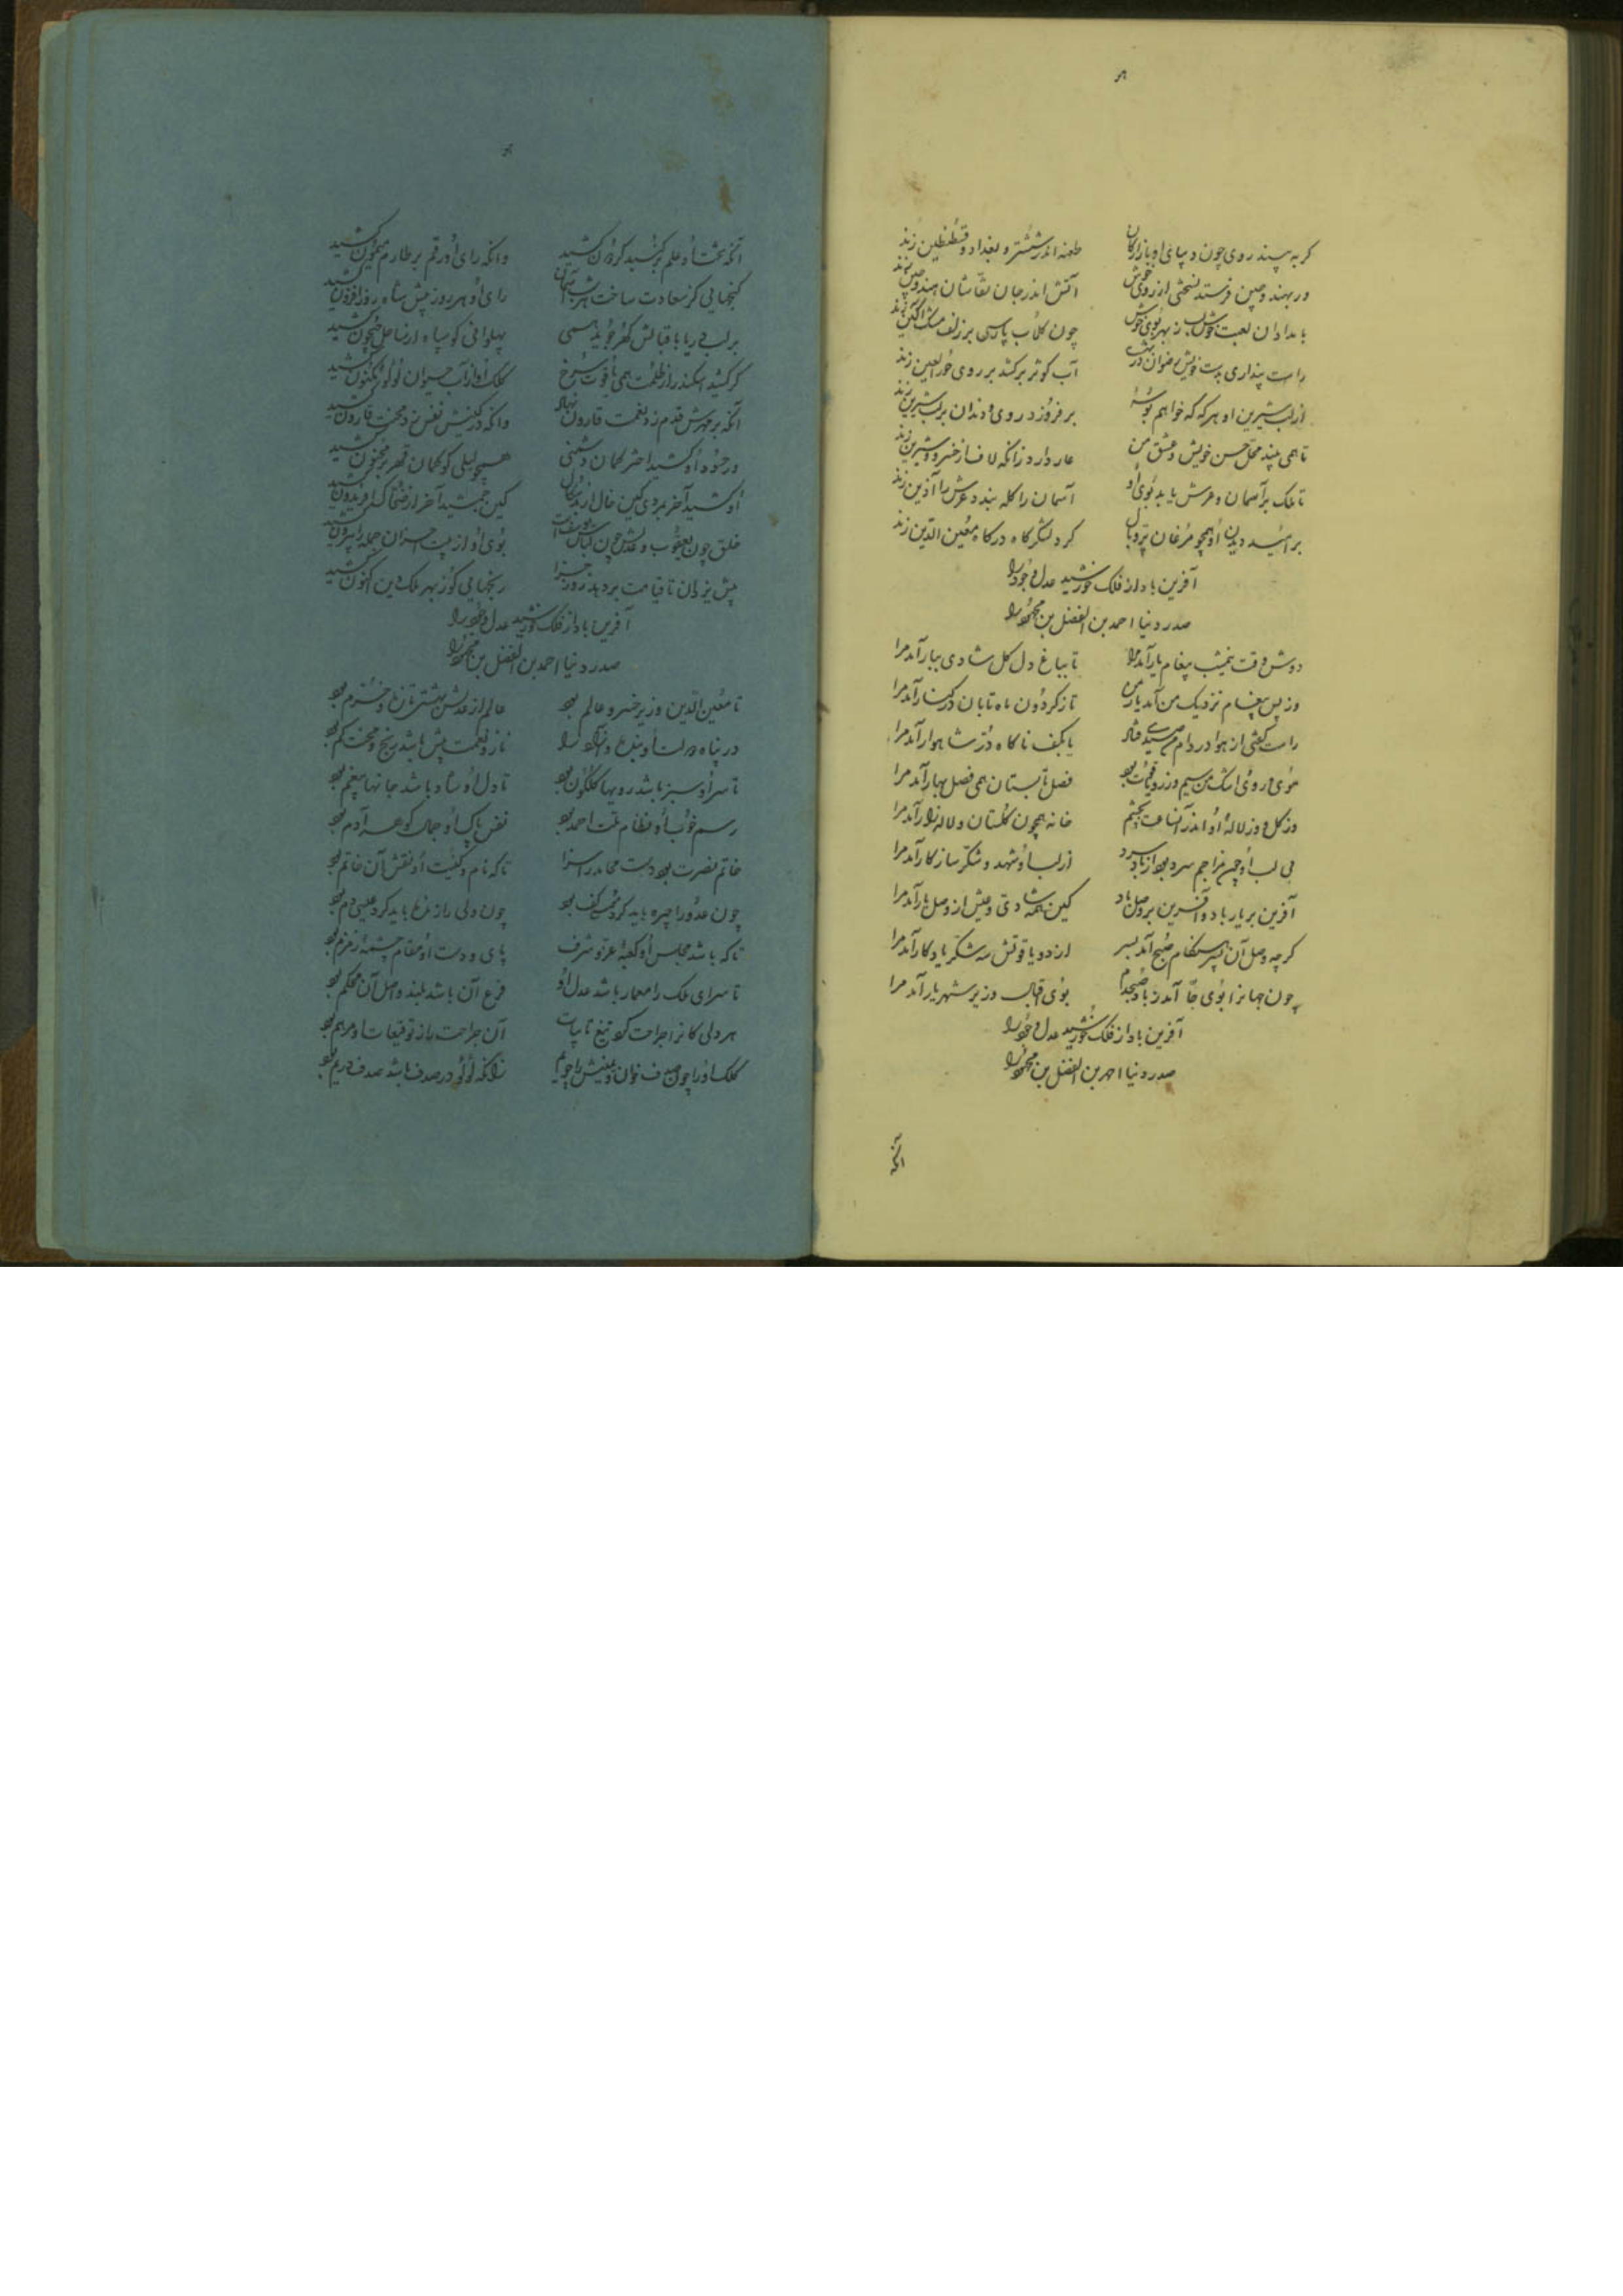 گر به بیند روی چون دیبای او بازارگان طعنه اندر ششتر و بغداد و قسطنطین زند
ور بهند و چین فرستد نسختی از روی خویش آتش اندر جان نقاشان هند و چین زند
بامدادان لعبت خوش لب ز بهر بوی خوش چون گلاب پارسی بر زلف مشک آگین زند
راست پنداری بدست خویش رضوان در بهشت آب کوثر برکشد بر روی حور العین زند
از لب شیرین او هر گه که خواهم بوسهٔ برفروزد روی و دندان بر لب شیرین زند
تا همی بیند محل حسن خویش و عشق من عار دارد زانکه لاف از خسرو و شیرین زند
تا ملک بر آسمان و عرش یابد بوی او آسمان را کله بندد عرش را آذین زند
بر امید دیدن او همچو مرغان پر و بال گرد لشگرگاه درگاه معین الدین زند
آفرین باد از فلک خورشید عدل و جود را
صدر دنیا احمد بن الفضل بن محمود را
دوش وقت نیمشب پیغام یار آمد مرا تا بباغ دل گل شادی ببار آمد مرا
وز پس پیغام نزدیک من آمد یار من تا ز گردون ماه تابان در کنار آمد مرا
راست گفتی از هوا در دام من صیدی فتاد یا بکف ناگاه در شاهوار آمد مرا
موی و روی و اشک من سیم و زر و یاقوت بود فصل تابستان همی فصل بهار آمد مرا
وز گل و وز لالهٔ او اندر آنساعت بچشم خانه همچون گلستان و لاله زار آمد مرا
بی لب او چون مزاجم سرد بود از باد سرد از لب او شهد و شکر سازگار آمد مرا
آفرین بر یار باد و آفرین بر وصل باد کین همه شادی و عیش از وصل یار آمد مرا
گرچه وصل آن پسر هنگام صبح آمد بسر از دو یاقوتش سه شکر یادگار آمد مرا
چون جهانرا بوی جان آمد ز باد صبحدم بوی اقبال وزیر شهریار آمد مرا
آفرین باد از فلک خورشید عدل و جود را
صدر دنیا احمد بن الفضل بن محمود را
آنکه
آنکه بخت او علم بر گنبد گردون کشید وانکه رای او رقم بر طارم میمون کشید
گنجهایی کز سعادت ساخت هر شب آسمان رای او هر روز پیش شاه روز افزون کشید
بر لب دریا باقبالش گهر جوید همی پهلوانی کو سپاه از ساحل جیحون کشید
گر کشید اسکندر از ظلمت همی یاقوت سرخ کلک او از آب حیوان لؤلؤ مکنون کشید
آنکه بر مهرش قدم زد نعمت قارون نهاد وانکه در کینش نفس زد محنت قارون کشید
ور حسود او کشید اختر کمان دشمنی همچو لیلی کو کمان قهر بر مجنون کشید
او کشید آخر بمردی کین خال از بدسگال کین جمشید آخر از ضحاک افریدون کشید
خلق چون یعقوب و عدلش چون لباس یوسفست بوی او از بیت احزان جمله را بیرون کشید
پیش یزدان تا قیامت بر دهد روز جزا رنجهایی کو ز بهر ملک و دین اکنون کشید
آفرین باد از فلک خورشید عدل و جود را
صدر دنیا احمد بن الفضل بن محمود را
تا معین الدین وزیر خسرو عالم بود عالم از عدلش بهشتی تازه و خرم بود
در پناه دولت او بنده و آزاد را ناز و نعمت بیش باشد رنج و محنت کم بود
تا سر او سبز باشد رویها گلگون بود تا دل او شاد باشد جانها بیغم بود
رسم خوب او نظام ملت احمد بود نفس پاک او جمال گوهر آدم بود
خاتم نصرت بود دست محامد را سزا تا که نام و کنیت او نقش آن خاتم بود
چون عدو را چیره باید کرد کف بود چون ولی را زنده باید کرد عیسی دم بود
تا که باشد مجلس او کعبهٔ عز و شرف پای و دست او مقام و چشمهٔ زمزم بود
تا سرای ملک را معمار باشد عدل او فرع آن باشد بلند و اصل آن محکم بود
هر دلی کانرا جراحت کرد تیغ نایبات آن جراحت را ز توقیعات او مرهم بود
کلک او را چون صدف خوان و یمینش را چو یم زانکه لؤلؤ در صدف باشد صدف در یم بود